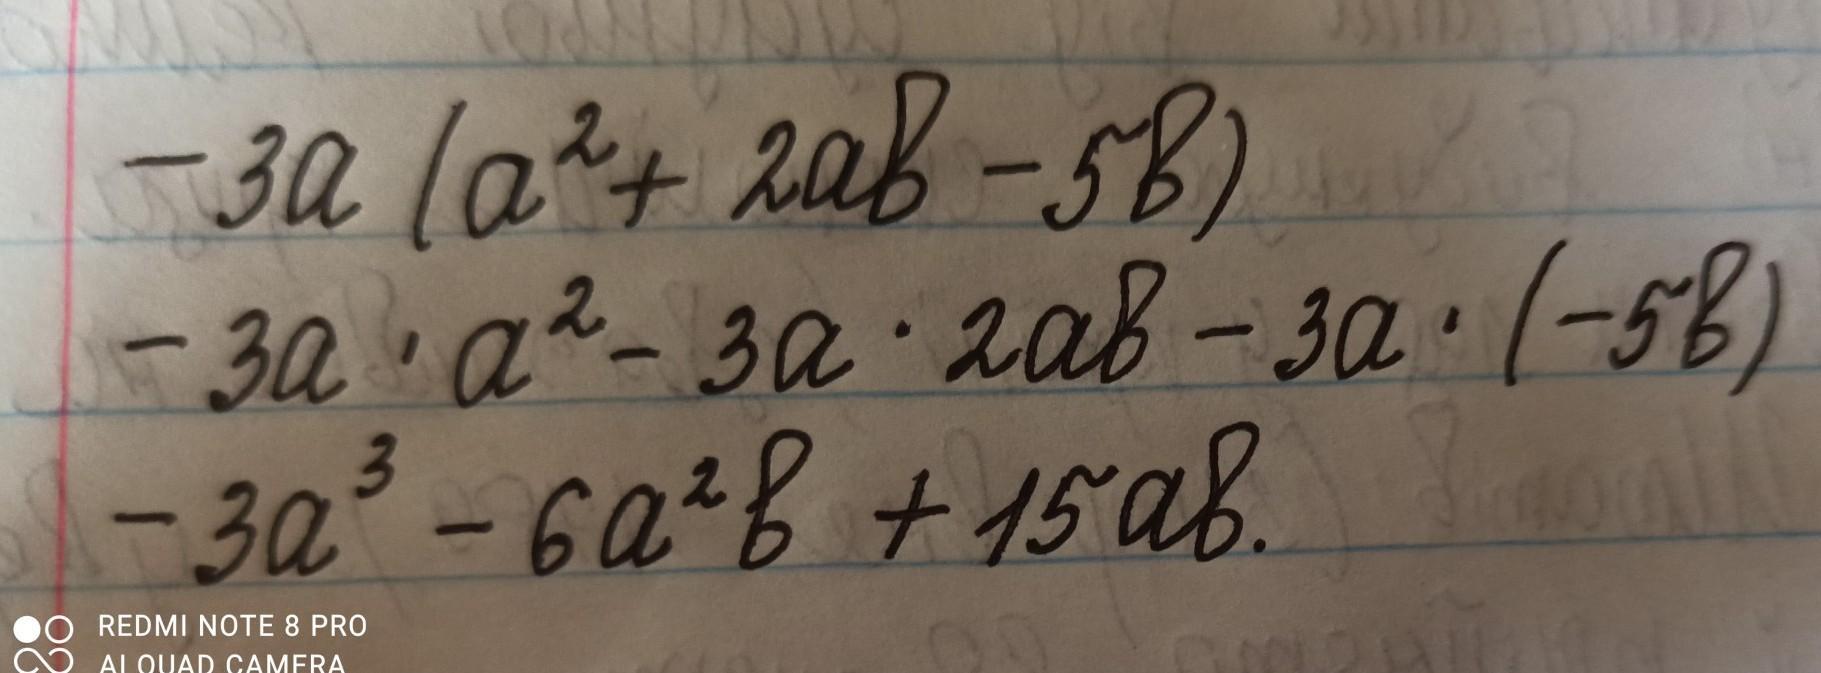 -3a (a² + 2ab - 5b)
-3a · a² - 3a · 2ab - 3a · (-5b)
-3a³ - 6a²b + 15ab.
REDMI NOTE 8 PRO
AI QUAD CAMERA